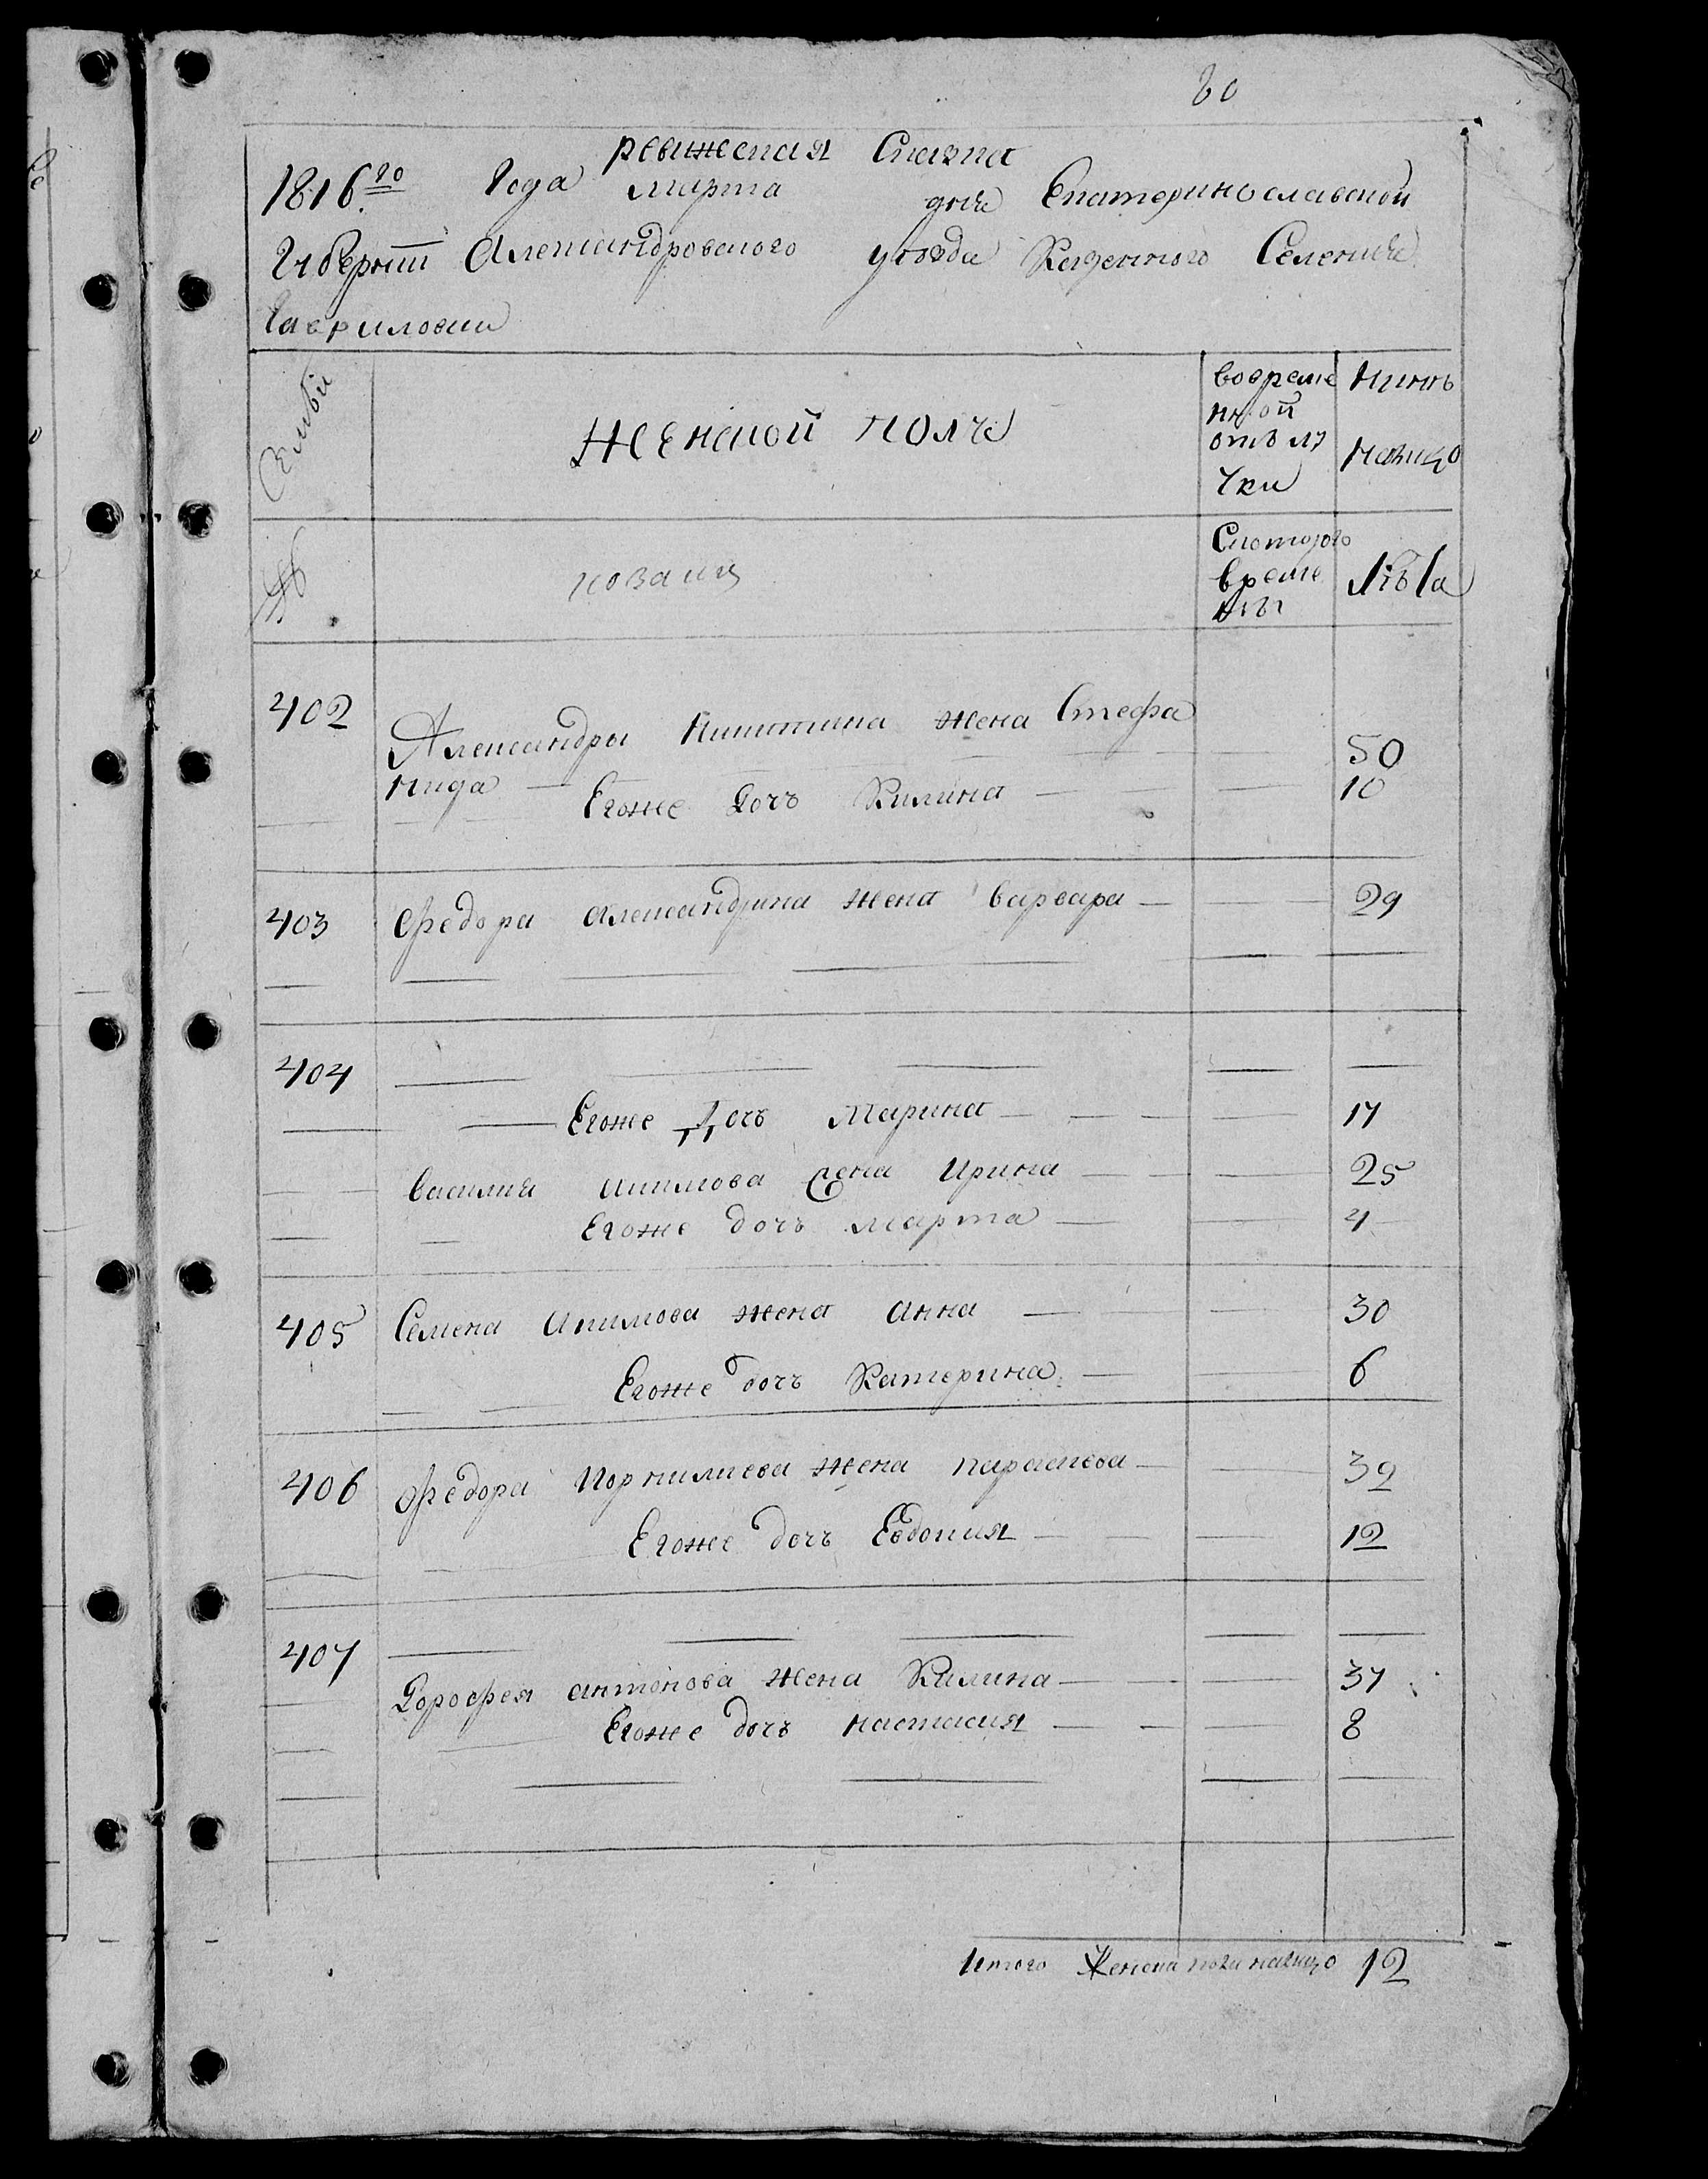 80
ревижская Сказка
1816го Года Марта дня Екатеринославской
Губернии Александровского уезда Казенного Селения
Гавриловки
Семьи
Женской полъ
вовреме
нной
отлу
чки
Нинѣ
налицо
№
Скоторого
време
ни
Лѣта
402 Александры Никитина жена Стефа
нида 50
Егоже Дочь Килина 10
403 Федора Александрина жена варвара 29
404
Егоже Дочь Марина 17
василия Акимова Жена Ирина 25
Егоже дочь марта 4
405 Семена Акимова жена анна 30
Егоже дочь Катерина 6
406 Федора Корнилиева жена параскева 39
Егоже дочь Евдокия 12
407
Дорофея антонова жена Килина 37
Егоже дочь настасия 8
Итого Женска пола налицо 12